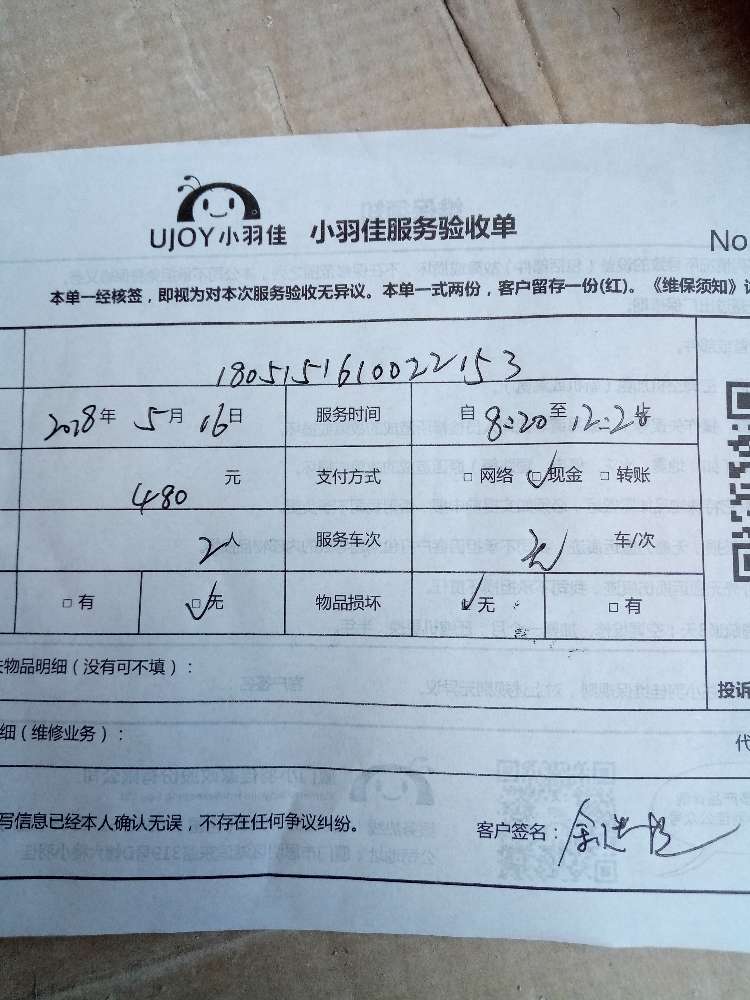 UJOY小羽佳 小羽佳服务验收单
No
本单一经核签，即视为对本次服务验收无异议。本单一式两份，客户留存一份(红)。《维保须知》
1805151610022153
2018年 5月 16日 服务时间 自 8:20 至 12:2
480 元 支付方式 □ 网络 □ 现金 □ 转账
2人 服务车次 无 车/次
□ 有 □ 无 物品损坏 □ 无 □ 有
物品明细（没有可不填）：
投诉
细（维修业务）：
代
写信息已经本人确认无误，不存在任何争议纠纷。 客户签名：